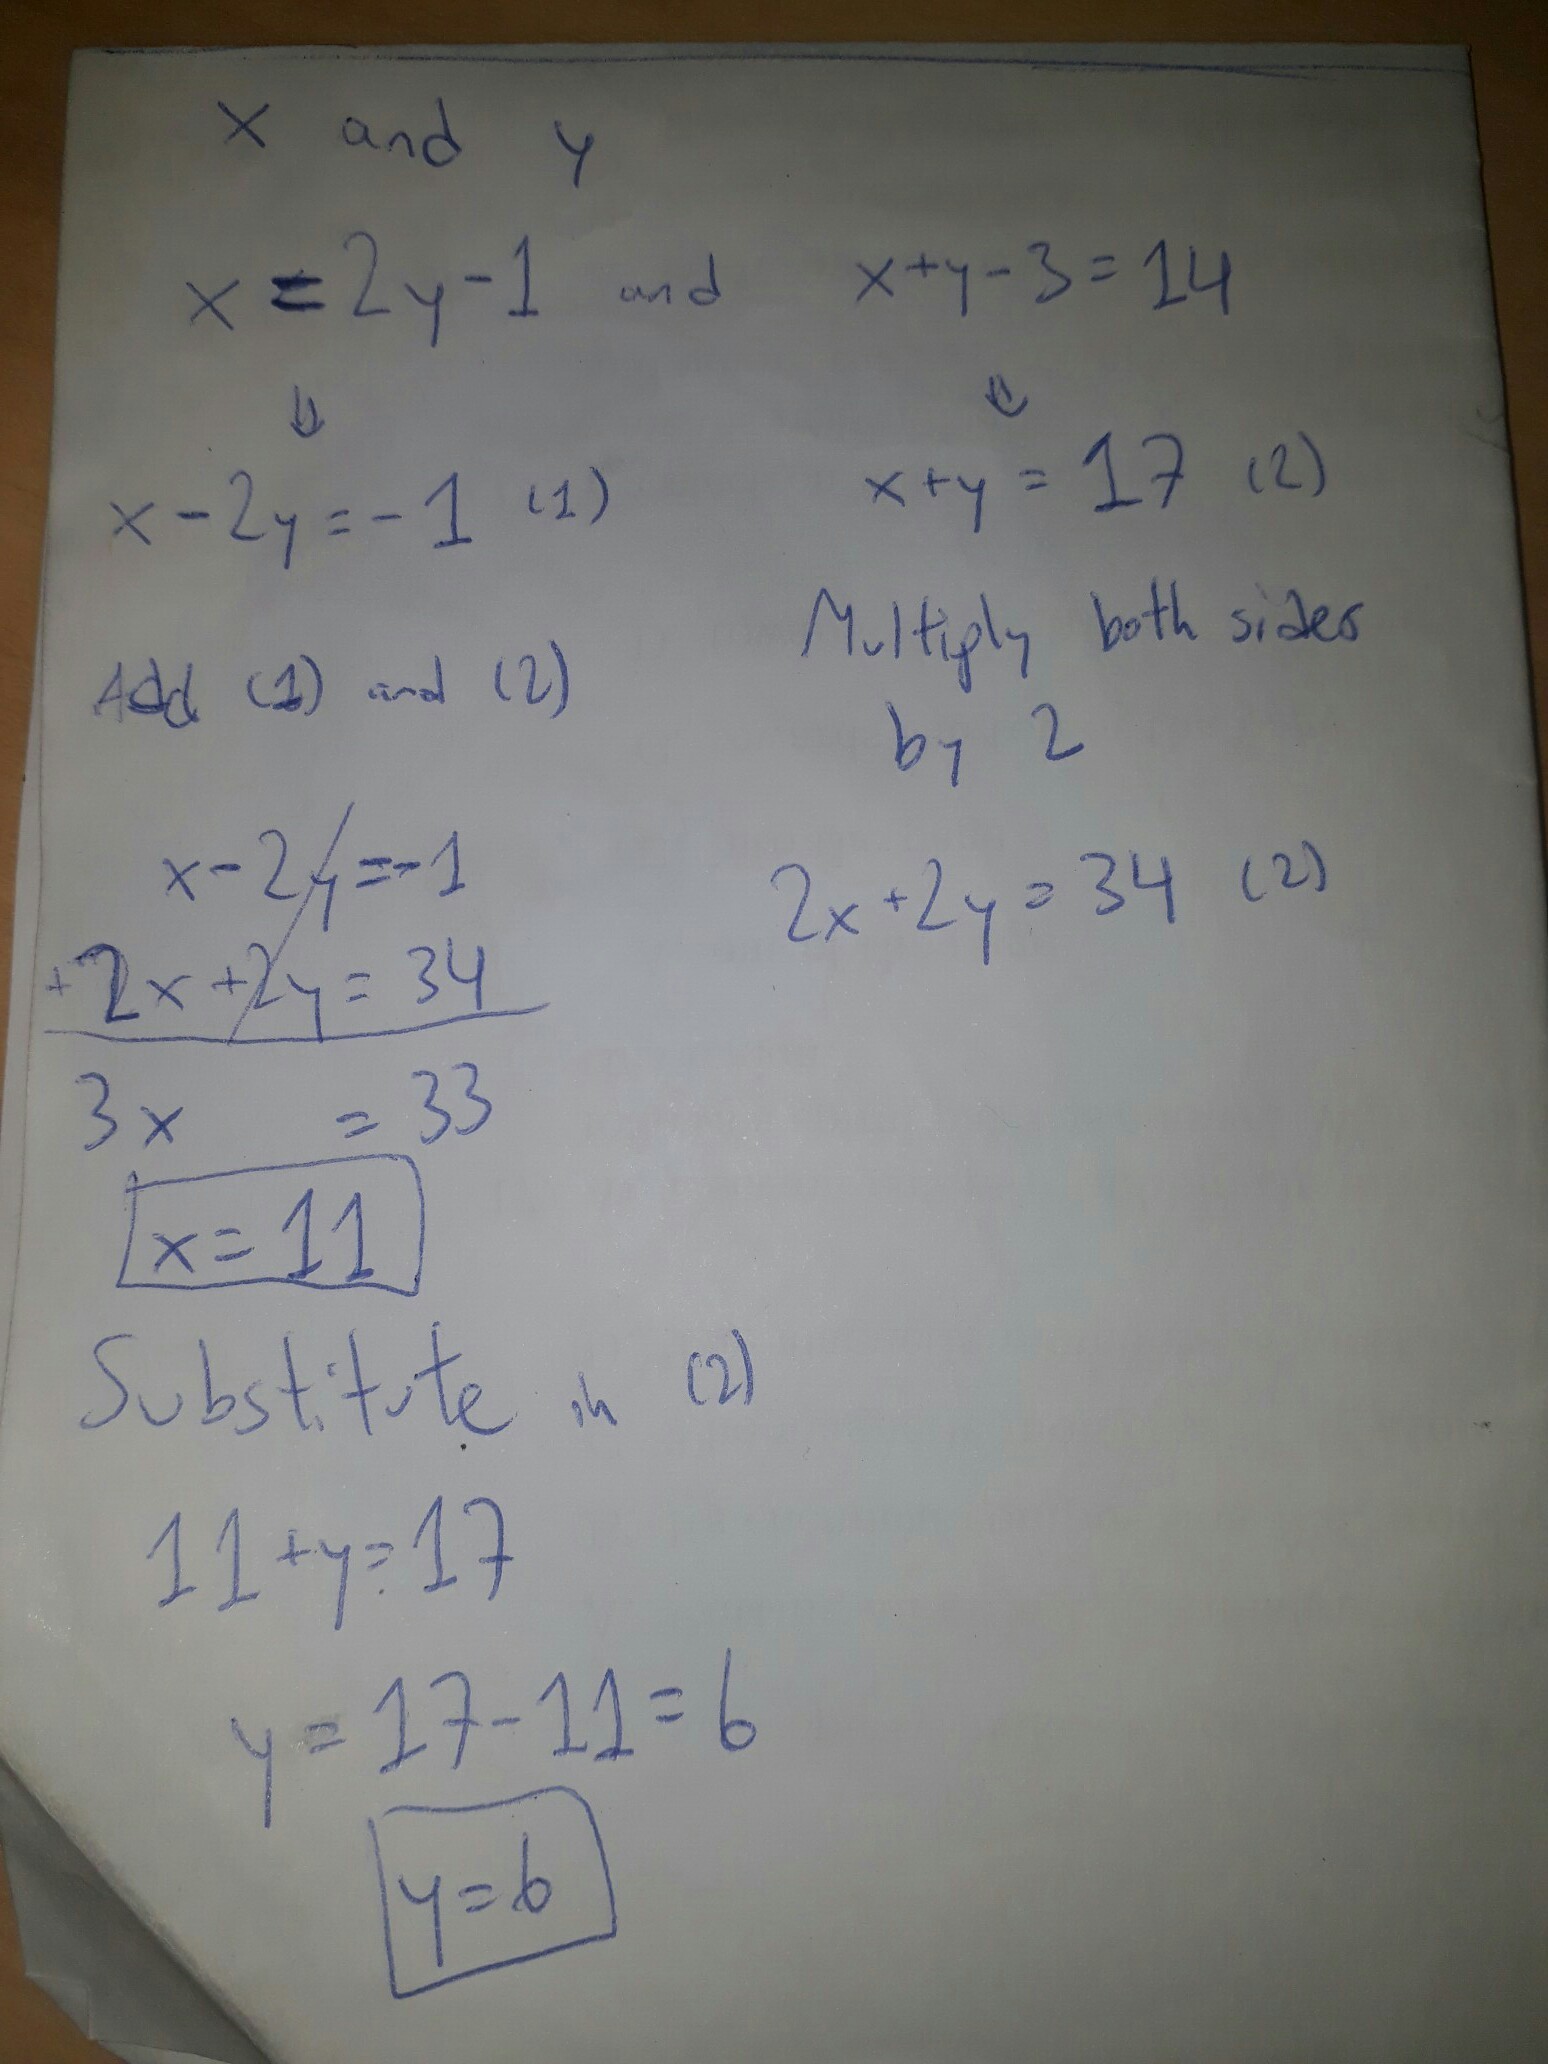 x and y
x = 2y - 1 and x + y - 3 = 14
↓ ↓
x - 2y = -1 (1)
x + y = 17 (2)
Multiply both sides
by 2
2x + 2y = 34 (2)
Add (1) and (2)
x - 2y = -1
+ 2x + 2y = 34
3x = 33
x = 11
Substitute in (2)
11 + y = 17
y = 17 - 11 = 6
y = 6